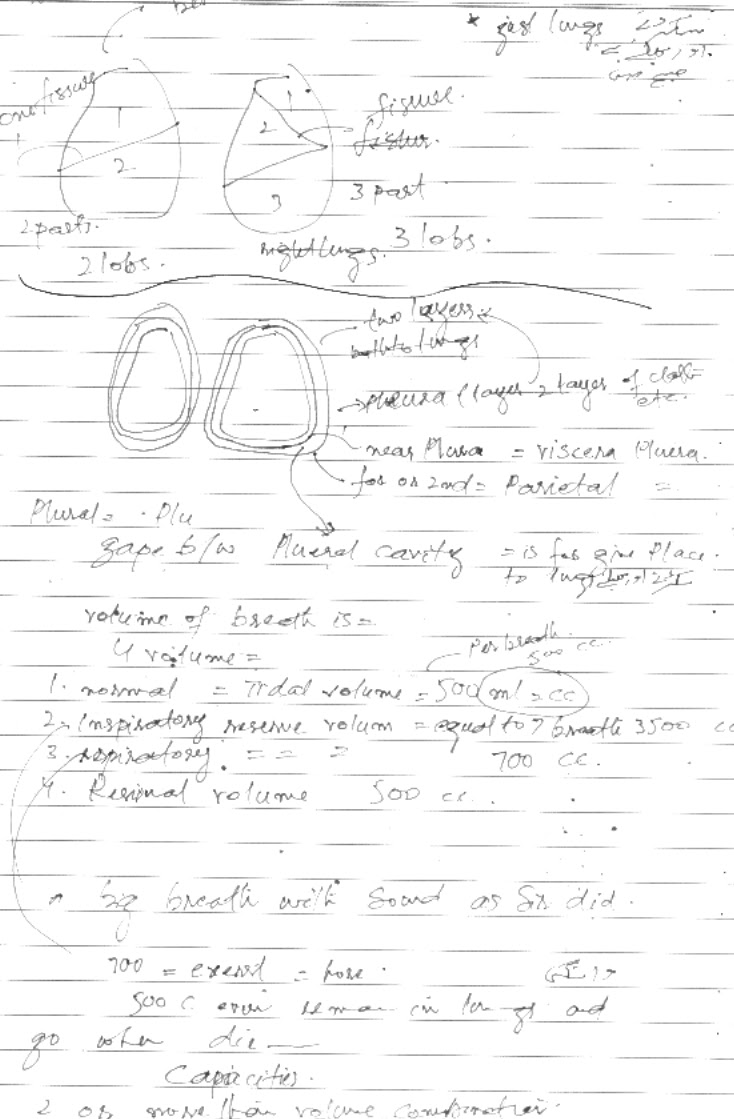 * just lungs
one fissure
1
1
2
2
fissure.
3
3 part
2 parts.
2 lobs.
right lungs. 3 lobs.
two layers
lungs
Pleura (layer 2 layer of cloth etc.
near Plura = viscera Pluera.
for or 2nd = Parietal =
Plural = . Plu
gape b/w Plueral cavity = is for give Place.
to lungs
volume of breath is =
4 volume =
Per breath 500 cc
1. normal = Tidal volume = 500 ml = cc
2. Inspiratory reserve volum = equal to 7 breath 3500 cc
3. respiratory = = = 700 cc.
4. Resinal volume 500 cc.
big breath with Sound as Sir did.
700 =
500 c in lungs and
go when die
Capacities.
2 or more than volume combination.